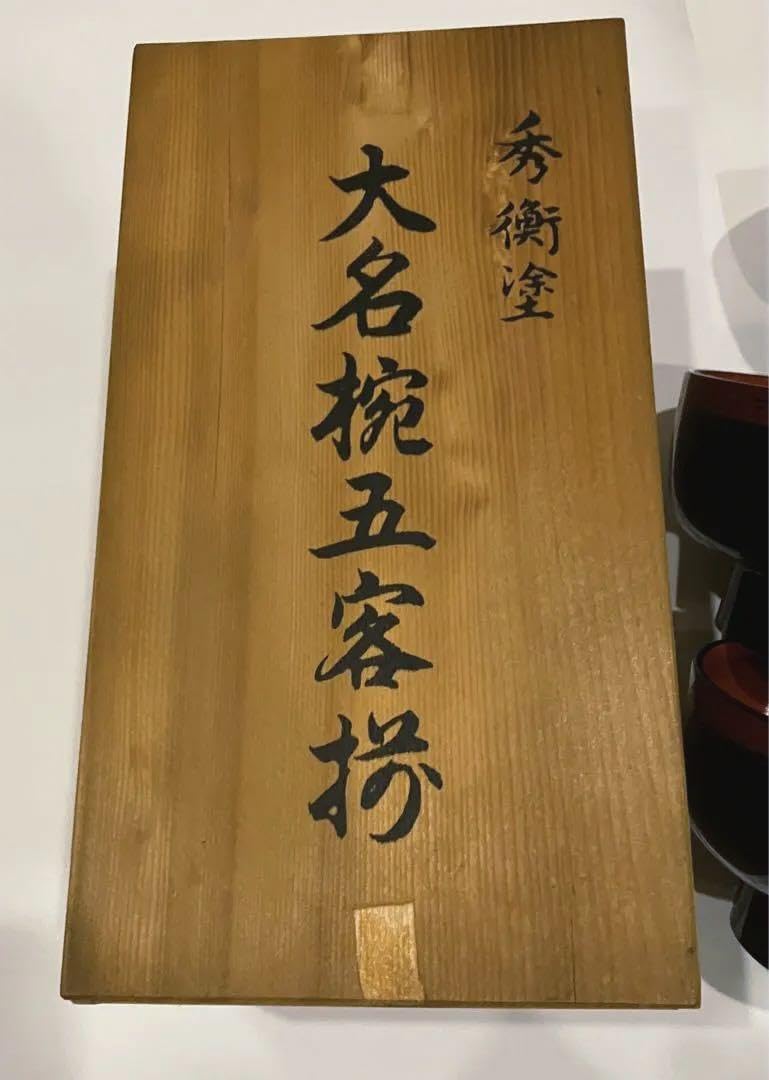 秀衡塗
大名椀五客揃